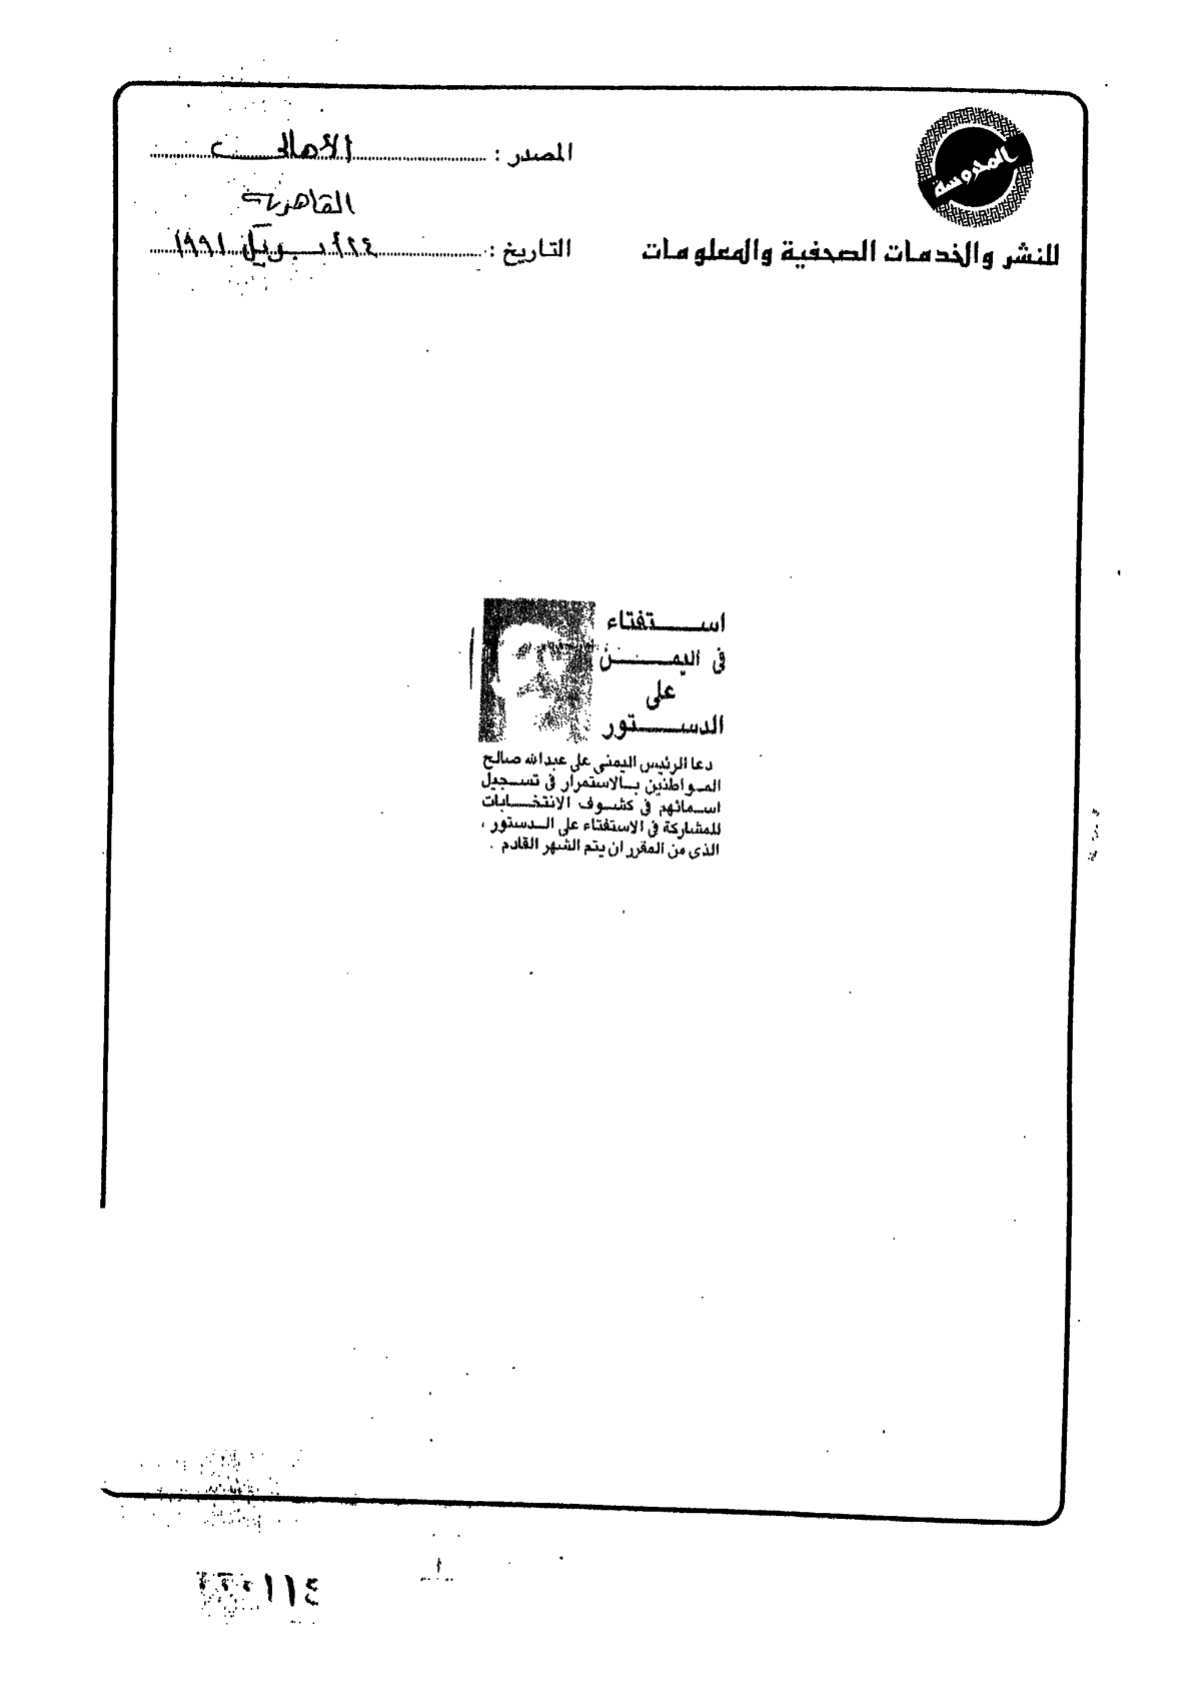 المحروسة
للنشر والخدمات الصحفية والمعلومات
المصدر : الأهالي
القاهرية
التاريخ : ٢٤ أبريل ١٩٩١
استفتاء
فى اليمن
على
الدستور
دعا الرئيس اليمنى على عبدالله صالح
المواطنين بالاستمرار فى تسجيل
اسمائهم فى كشوف الانتخابات
للمشاركة فى الاستفتاء على الدستور ،
الذى من المقرر ان يتم الشهر القادم .